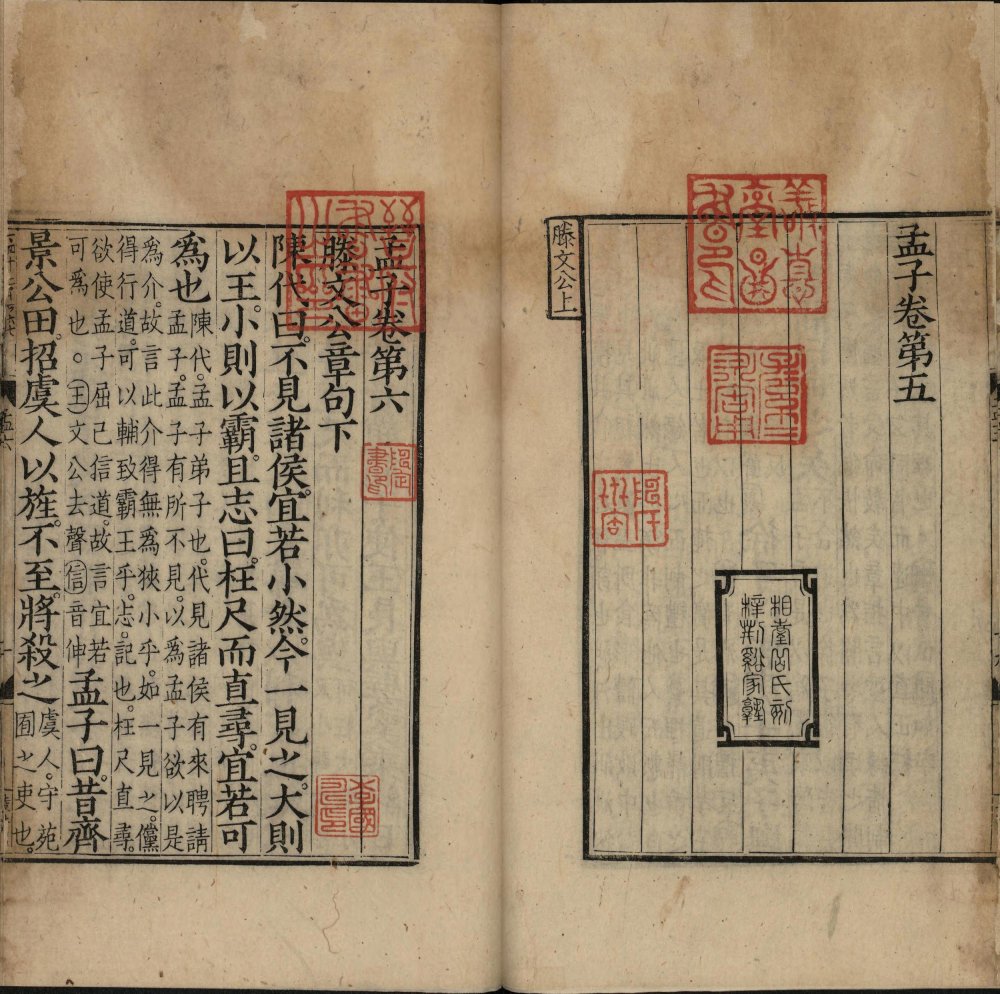 孟子卷第五
相臺岳氏刻
梓荊谿家塾
滕文公上
孟子卷第六
滕文公章句下
陳代曰。不見諸侯。宜若小然。今一見之。大則
以王。小則以霸。且志曰。枉尺而直尋。宜若可
爲也陳代。孟子弟子也。代見諸侯有來聘請
孟子。孟子有所不見。以爲孟子欲以是
爲介。故言此介得無爲狹小乎。如一見之。儻
得行道。可以輔致霸王乎。志。記也。枉尺直尋。
欲使孟子屈己信道。故言宜若
可爲也。。王文公去聲信音伸
孟子曰。昔齊
景公田。招虞人以旌。不至。將殺之虞人。守苑
囿之吏也。